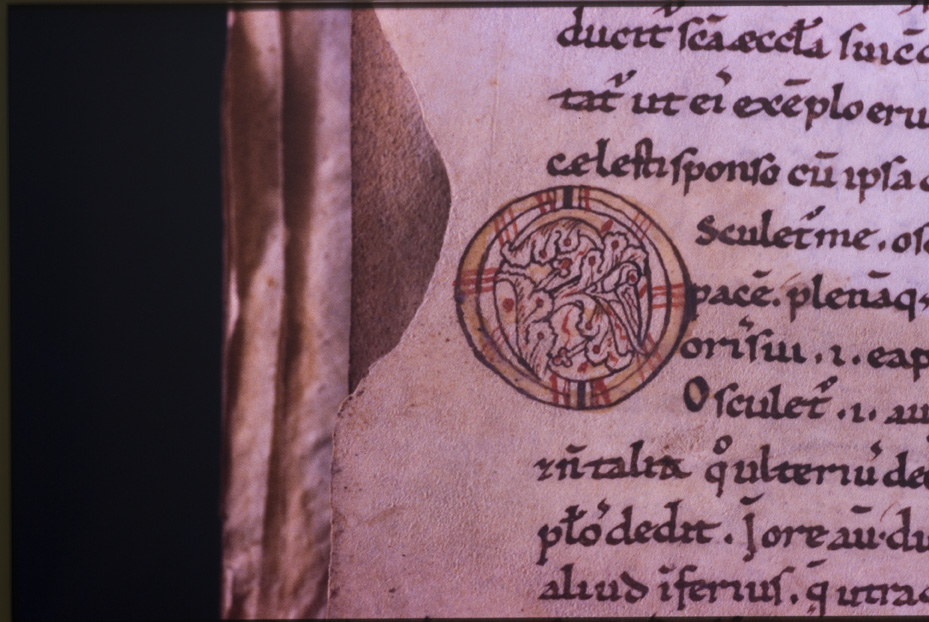 ducit scā æccła sui
tat᷎ ut ei exēplo eru
cælesti sponso cū ipsa
Osculet᷎ me. os
pacē. plenāq;
oris sui. i. eap
Osculet᷎. i. au
⁊ ñ talia q̊ ulteriu᷎ de
pło᷎ dedit. Iore aū du
aliud īferius. q̄ utra